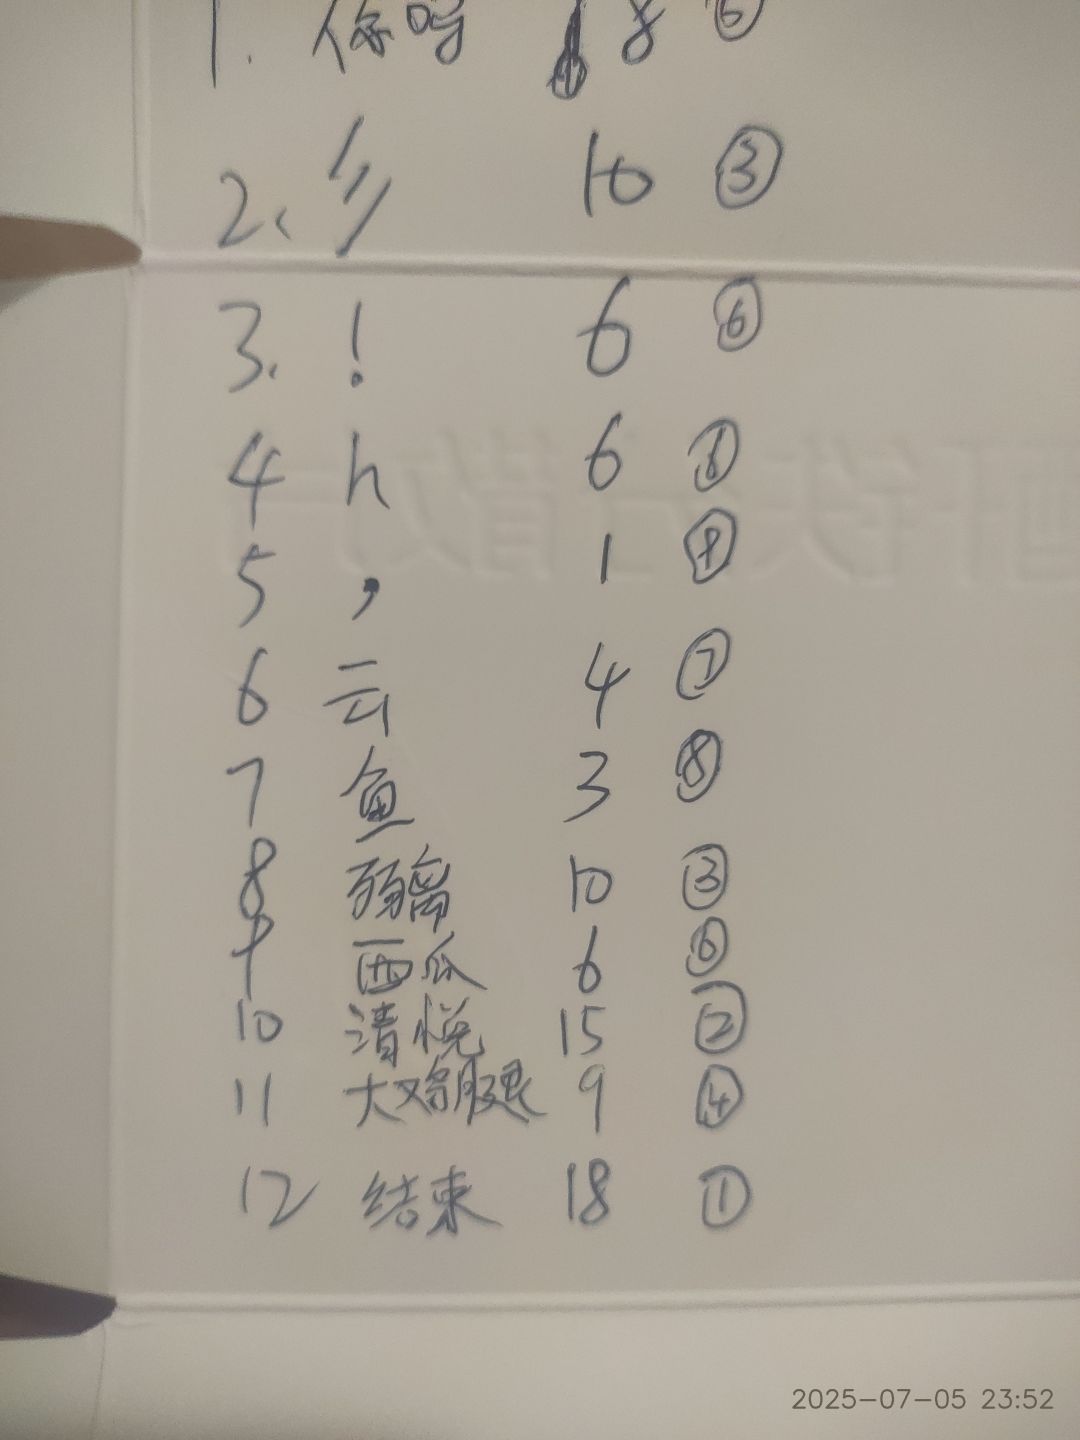 1. 你呀 8 ⑤
2、 彡 10 ③
3. ! 6 ⑥
4 h 6 ⑥
5 , 1 ⑨
6 云 4 ⑦
7 鱼 3 ⑧
8 弱离 10 ③
9 西瓜 6 ⑥
10 清悦 15 ②
11 大鸡腿 9 ④
12 结束 18 ①
2025-07-05 23:52